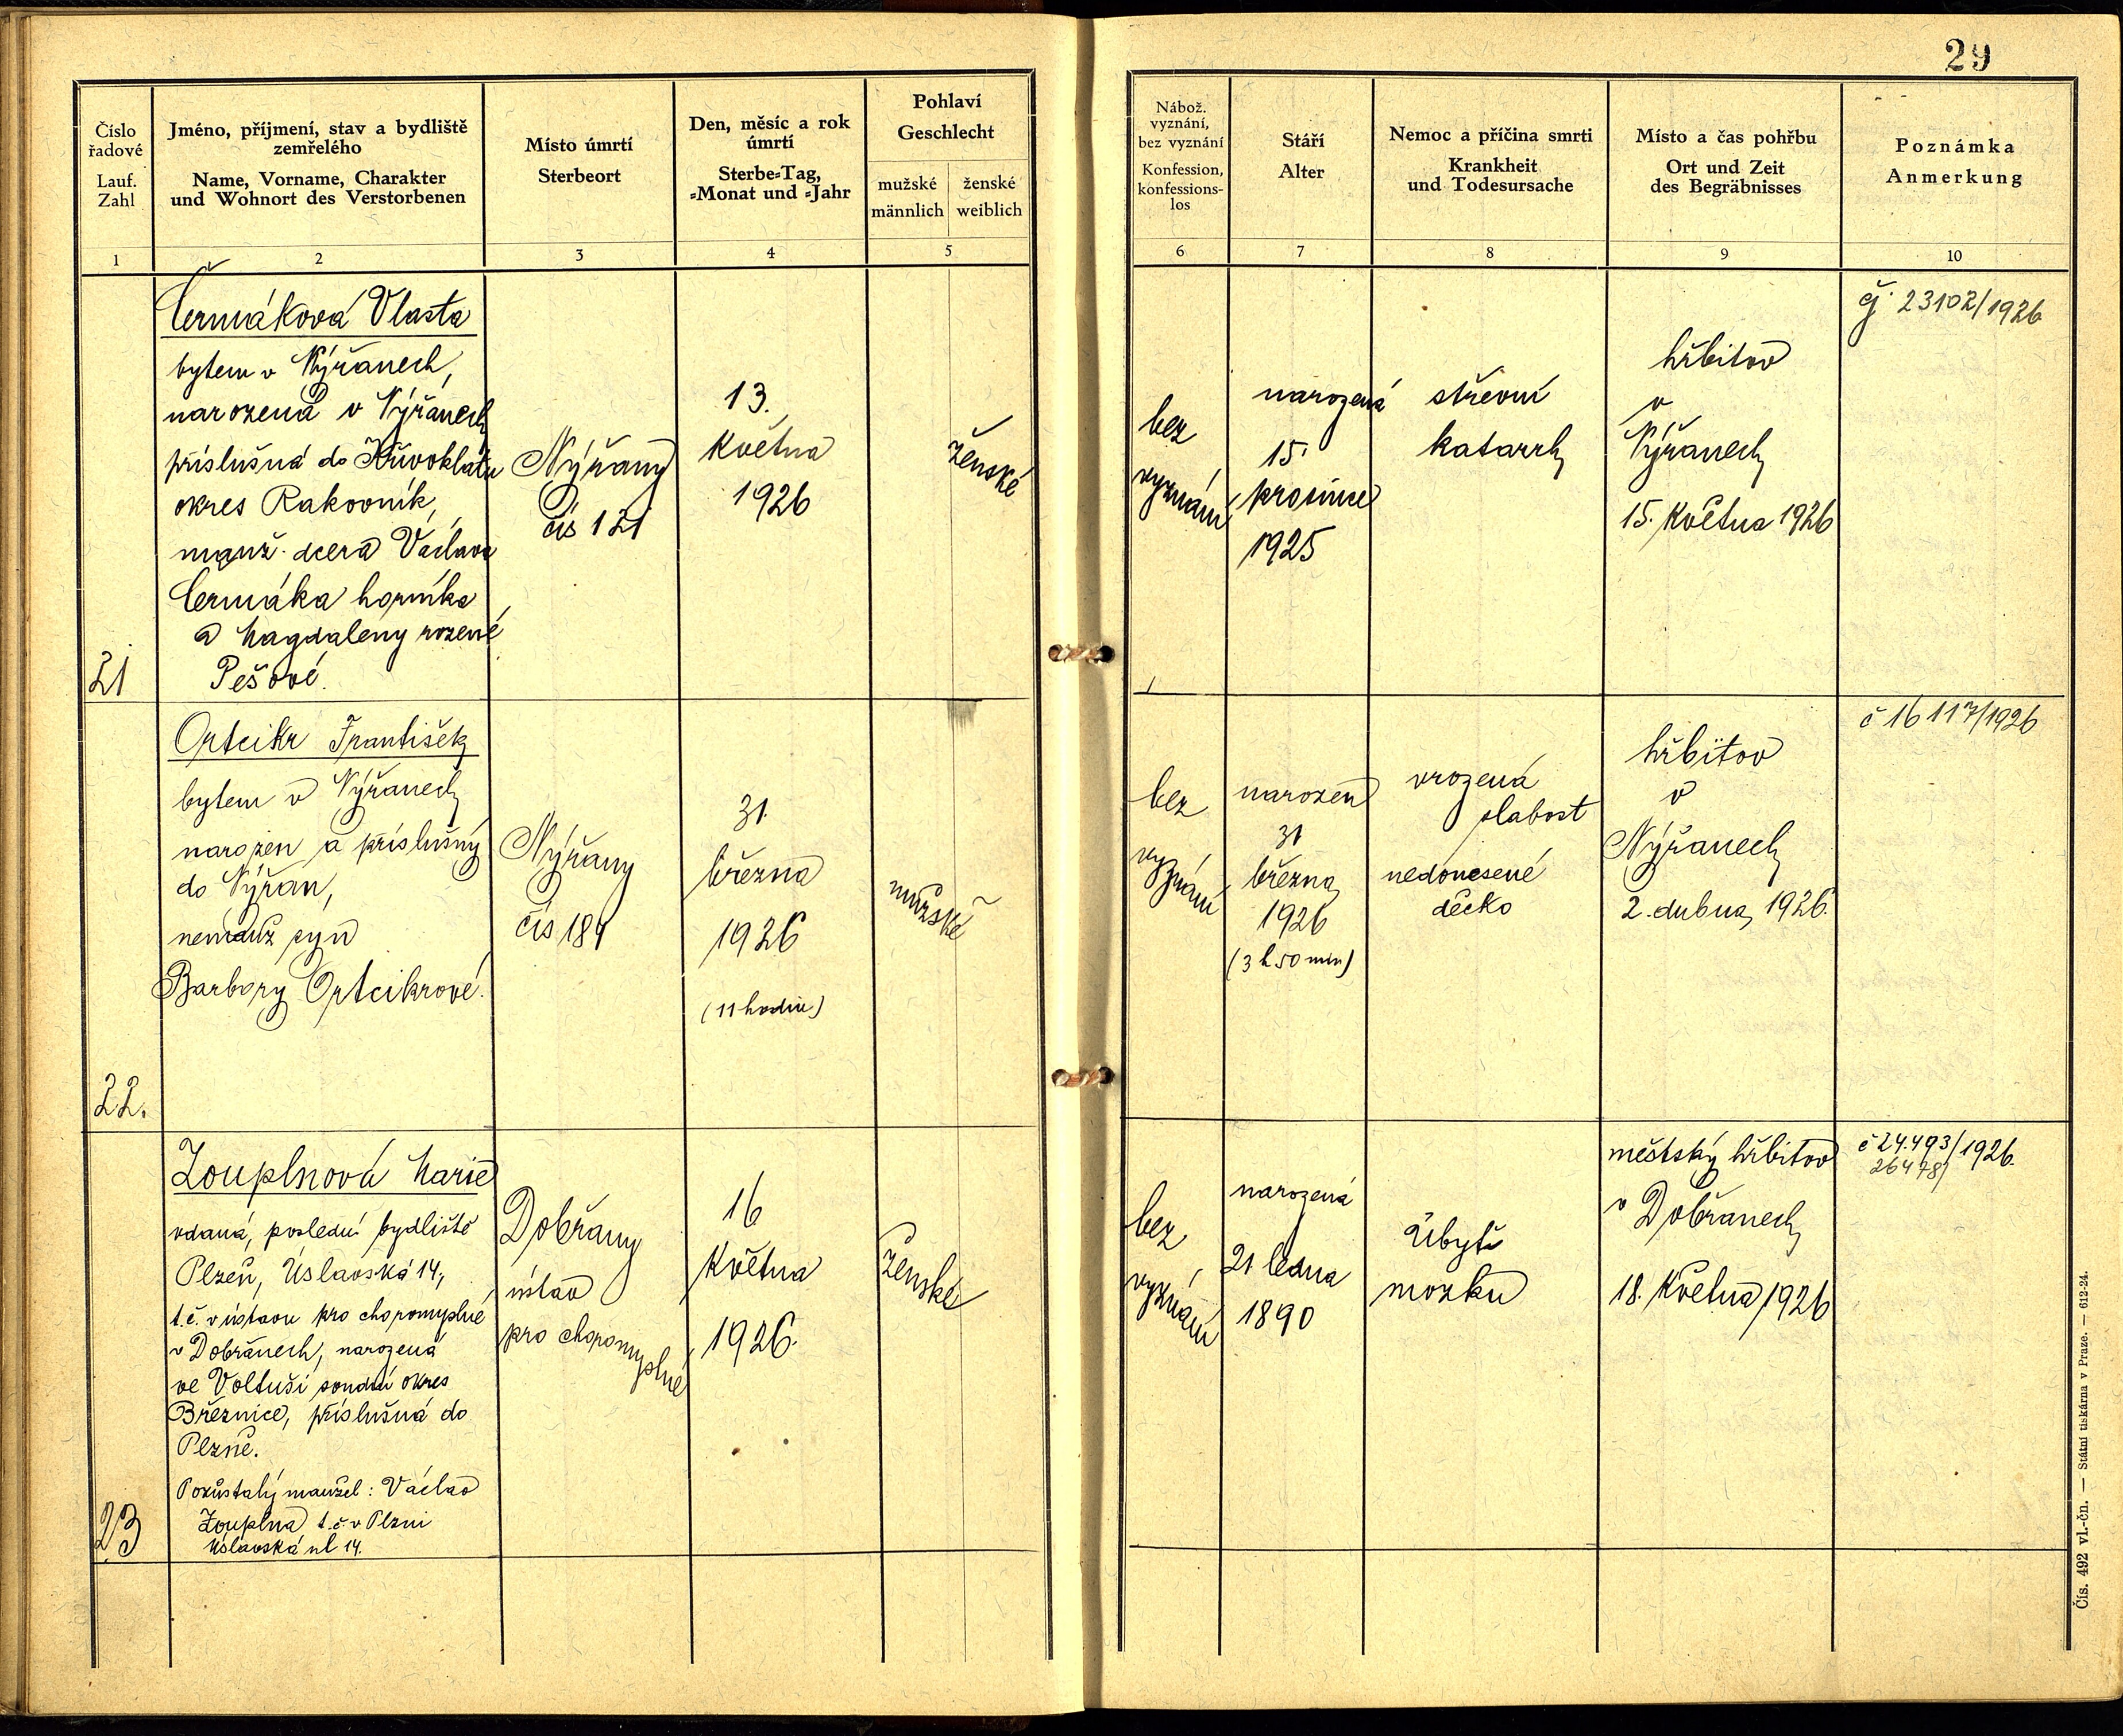 29
Číslo
řadové
Lauf.
Zahl
Jméno, příjmení, stav a bydliště
zemřelého
Name, Vorname, Charakter
und Wohnort des Verstorbenen
Místo úmrtí
Sterbeort
Den, měsíc a rok
úmrtí
Sterbe=Tag,
=Monat und =Jahr
Pohlaví
Geschlecht
mužské
männlich
ženské
weiblich
Nábož.
vyznání,
bez vyznání
Konfession,
konfessions-
los
Stáří
Alter
Nemoc a příčina smrti
Krankheit
und Todesursache
Místo a čas pohřbu
Ort und Zeit
des Begräbnisses
Poznámka
Anmerkung
1
2
3
4
5
6
7
8
9
10
21
Čermáková Vlasta
bytem v Nýřanech,
narozená v Nýřanech
příslušná do Křivoklátu
okres Rakovník,
manž. dcera Václava
Čermáka horníka
a Magdaleny rozené
Pešové.
Nýřany
čís 121
13.
května
1926
ženské
bez
vyznání
narozená
15.
prosince
1925
střevní
katarrh
hřbitov
v
Nýřanech
15. května 1926
čj. 23102/1926
22.
Ortcikr František
bytem v Nýřanech
narozen a příslušný
do Nýřan,
nemanž syn
Barbory Ortcikrové.
Nýřany
čís 184
31.
března
1926
(11 hodin)
mužské
bez
vyznání
narozen
31
března
1926
(3 h 50 min)
vrozená
slabost
nedonesené
děcko
hřbitov
v
Nýřanech
2. dubna 1926.
č 16117/1926
23
Zouplnová Marie
vdaná, poslední bydliště
Plzeň, Úslavská 14,
t.č. v ústavu pro choromyslné
v Dobřanech, narozená
ve Voltuši soudní okres
Březnice, příslušná do
Plzně.
Pozůstalý manžel: Václav
Zouplna t.č. v Plzni
Úslavská ul 14.
Dobřany
ústav
pro choromyslné
16
května
1926.
ženské
bez
vyznání
narozená
21 ledna
1890
Úbytě
mozku
městský hřbitov
v Dobřanech
18. května 1926
č 24.493/1926.
26478/
Čís. 492 vl.-čn. — Státní tiskárna v Praze. — 612-24.